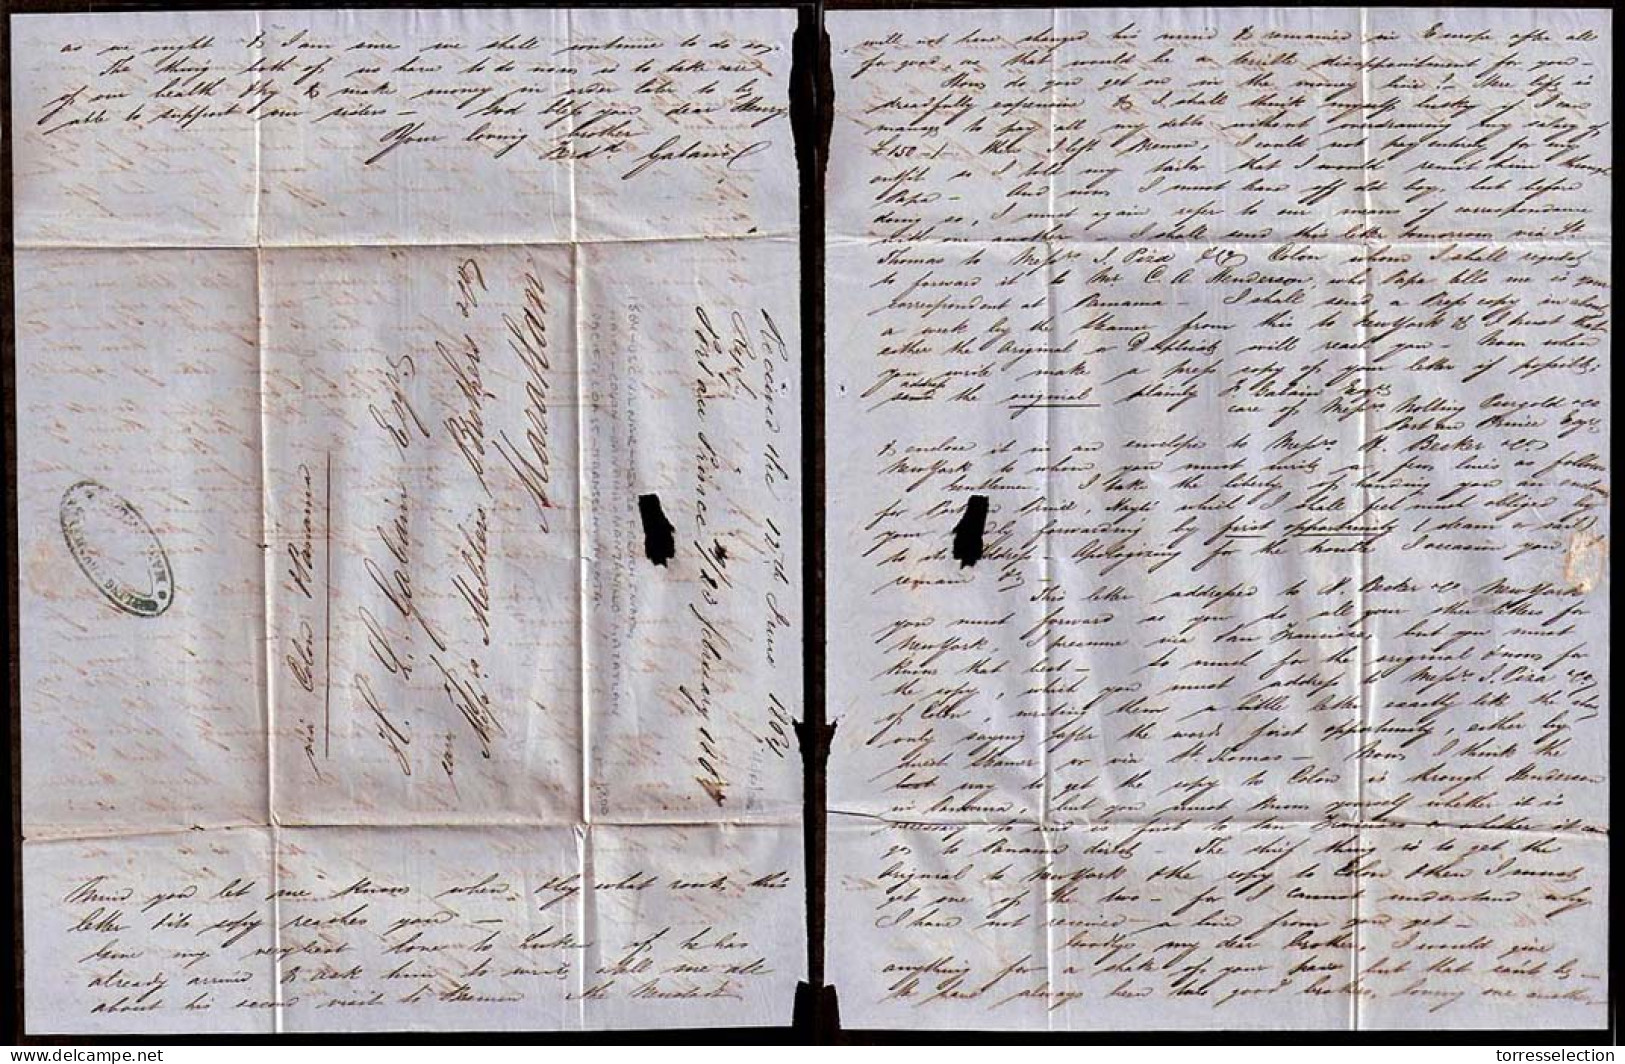 as we ought & I am sure we shall continue to do so,
The thing both of us have to do now is to take care
of our health & try to make money in order later to be
able to support our sisters — God bless you dear Henry,
Your loving brother
Ferd. Galain
Received the 12th June 1867
Port au Prince 23 February 1867
via Colon Panama
H. L. Galain Esqre
care of
Messrs Melchers Brothers & Co
Mazatlan
Mind you let me know when & by what route this
letter & its copy reaches you —
Give my very best love to if he has
already arrived & ask him to write & tell me all
about his second visit to Bremen
will not have changed his mind & remained in Europe after all
for good, as that would be a terrible disappointment for you —
How do you get on in the money line? — Here life is
dreadfully expensive & I shall think myself lucky if I can
manage to pay all my debts without overdrawing my salary of
£150 — When I left Bremen, I could not pay entirely for my
outfit so I told my tailor that I would remit him through
Papa — And now I must have off old boy, but before
doing so, I must again refer to our means of correspondence
with one another — I shall send this letter tomorrow via St.
Thomas to Messrs J. Piza & Co Colon whom I shall request
to forward it to Mr C. A. Henderson, who Papa tells me is your
correspondent at Panama — I shall send a Press copy in about
a week by the steamer from this to New York & I trust that
either the Original or Duplicate will reach you — Now when
you write make a press copy of your letter if possible;
address
send the original plainly F. Galain Esqre
care of Messrs Nolting Purgold & Co
Port au Prince Hayti
& enclose it in an envelope to Messrs H. Becker & Co
New York to whom you must write a few lines as follows
Gentlemen. I take the liberty of handing you an enclosure
for Port au Prince, Hayti which I shall feel much obliged by
your kindly forwarding by first opportunity (steam or sail)
to its address — Apologizing for the trouble I occasion you, I
remain &c —
This letter addressed to H. Becker & Co New York
you must forward as you do all your other letters for
New York, I presume via San Francisco, but you must
know that best — So much for the original & now for
the copy, which you must address to Messrs J. Piza & Co
of Colon, writing them a little letter exactly like the above
only saying after the words first opportunity, either by
direct steamer or via St. Thomas — Now I think the
best way to get the copy to Colon is through Henderson
in Panama, but you must know yourself whether it is
necessary to send it first to San Francisco or whether it can
go to Panama direct — The chief thing is to get the
Original to New York & the copy to Colon & then I must
get one of the two — for I cannot understand why
I have not received a line from you yet —
Goodbye my dear brother, I would give
anything for a shake of your paw but that can't be —
We have always been good brothers, loving one another
torresselection